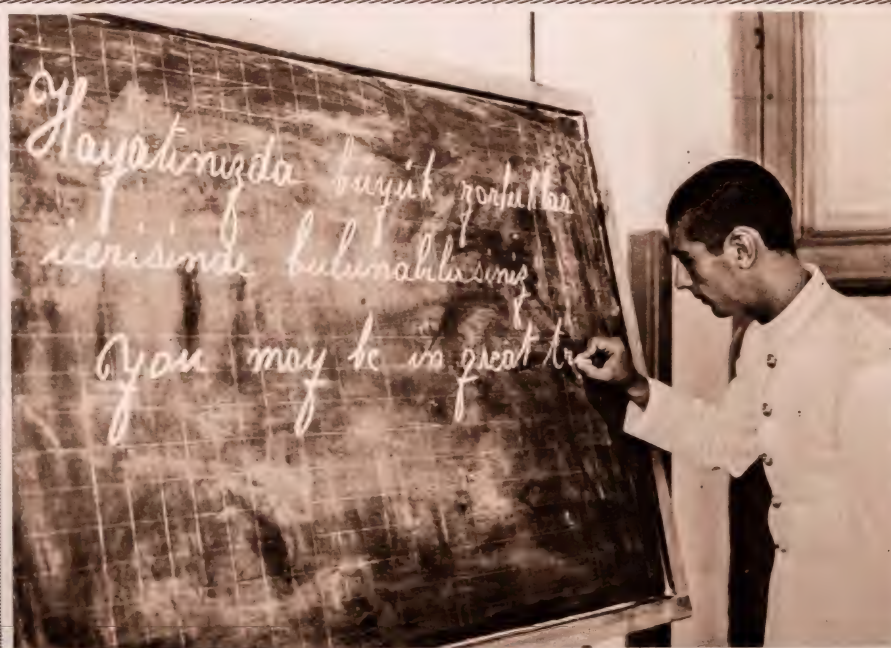 Hayatınızda büyük zorluklar
içerisinde bulunabilirsiniz
You may be in great tr